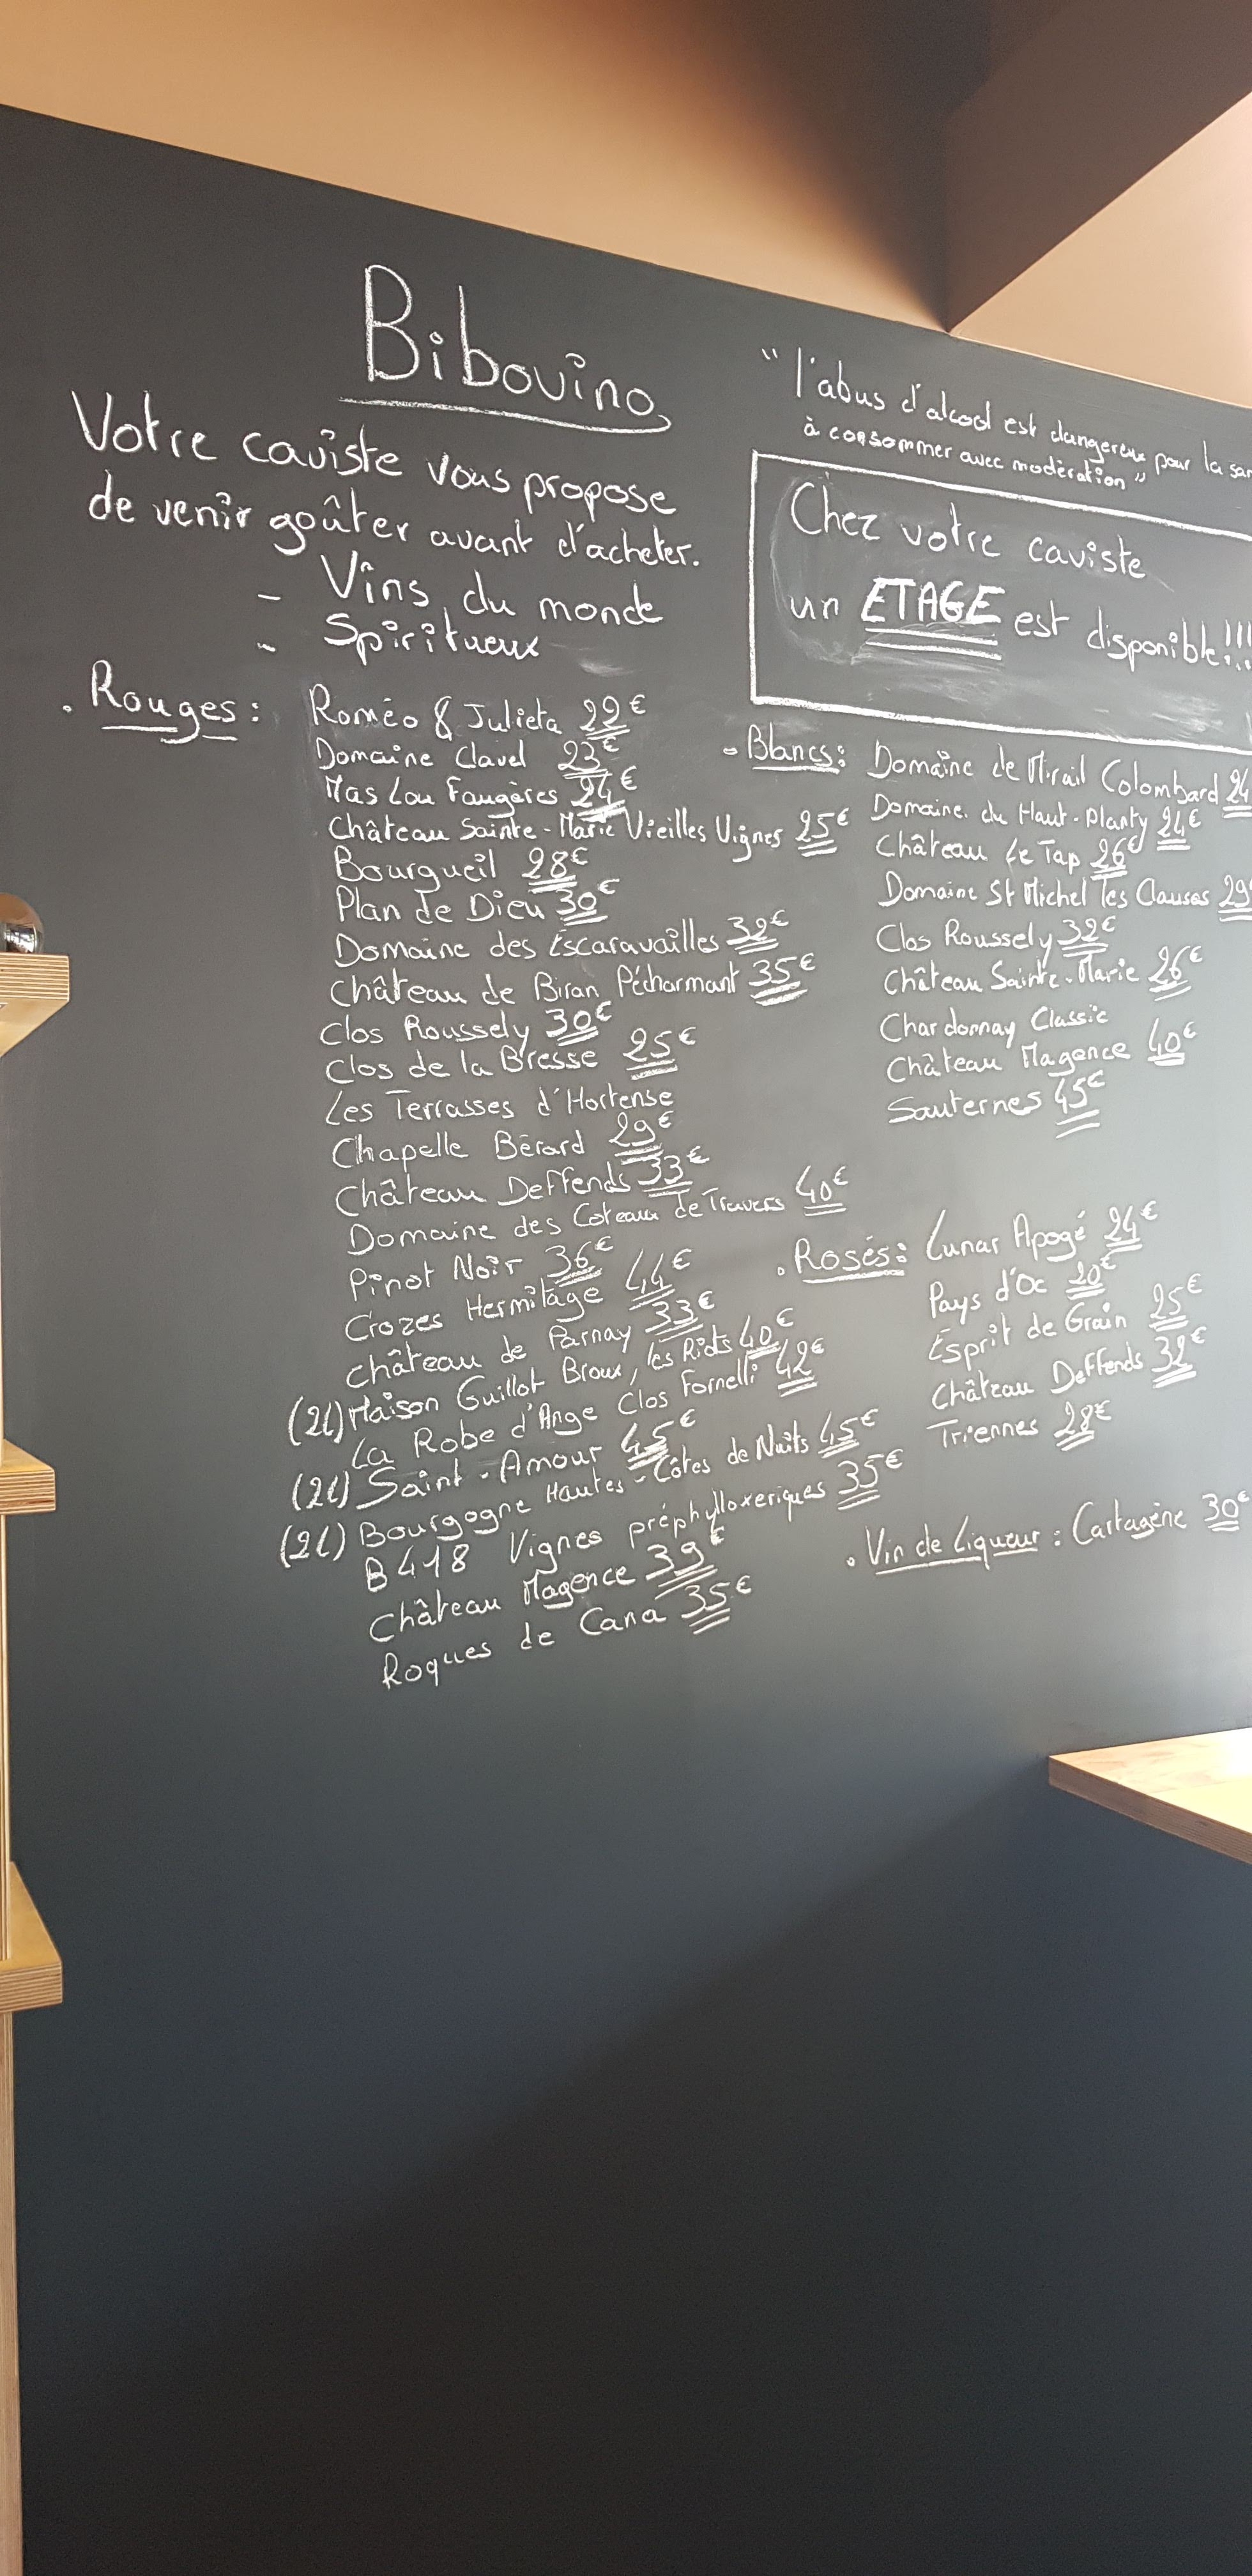 Bibovino
Votre caviste vous propose
de venir goûter avant d'acheter.
- Vins du monde
- Spiritueux
"l'abus d'alcool est dangereux pour la
à consommer avec modération"
Chez votre caviste
un ETAGE est disponible!!!
. Rouges :
Roméo & Julieta 22€
Domaine Clavel 23€
Mas Lou Faugères 24€
Château Sainte-Marie Vieilles Vignes 25€
Bourgueil 28€
Plan de Dieu 30€
Domaine des Escaravailles 32€
Château de Biran Pécharmant 35€
Clos Roussely 30€
Clos de la Bresse 25€
Les Terrasses d'Hortense
Chapelle Bérard 29€
Château Deffends 33€
Domaine des Coteaux de Travers 40€
Pinot Noir 36€
Crozes Hermitage 44€
Château de Parnay 33€
(2L) Maison Guillot Broux, les Rids 40€
La Robe d'Ange Clos Fornelli 42€
(2L) Saint-Amour 45€
(2L) Bourgogne Hautes-Côtes de Nuits 45€
B418 Vignes préphylloxeriques 35€
Château Magence 39€
Roques de Cana 35€
. Blancs :
Domaine de Mirail Colombard 24
Domaine du Haut-Planty 24€
Château Le Tap 26€
Domaine St Michel les Clauses 29€
Clos Roussely 32€
Château Sainte-Marie 26€
Chardonnay Classic
Château Magence 40€
Sauternes 45€
. Rosés : Lunar Apogé 24€
Pays d'Oc 20€
Esprit de Grain 25€
Château Deffends 32€
Triennes 28€
. Vin de Liqueur : Cartagène 30€